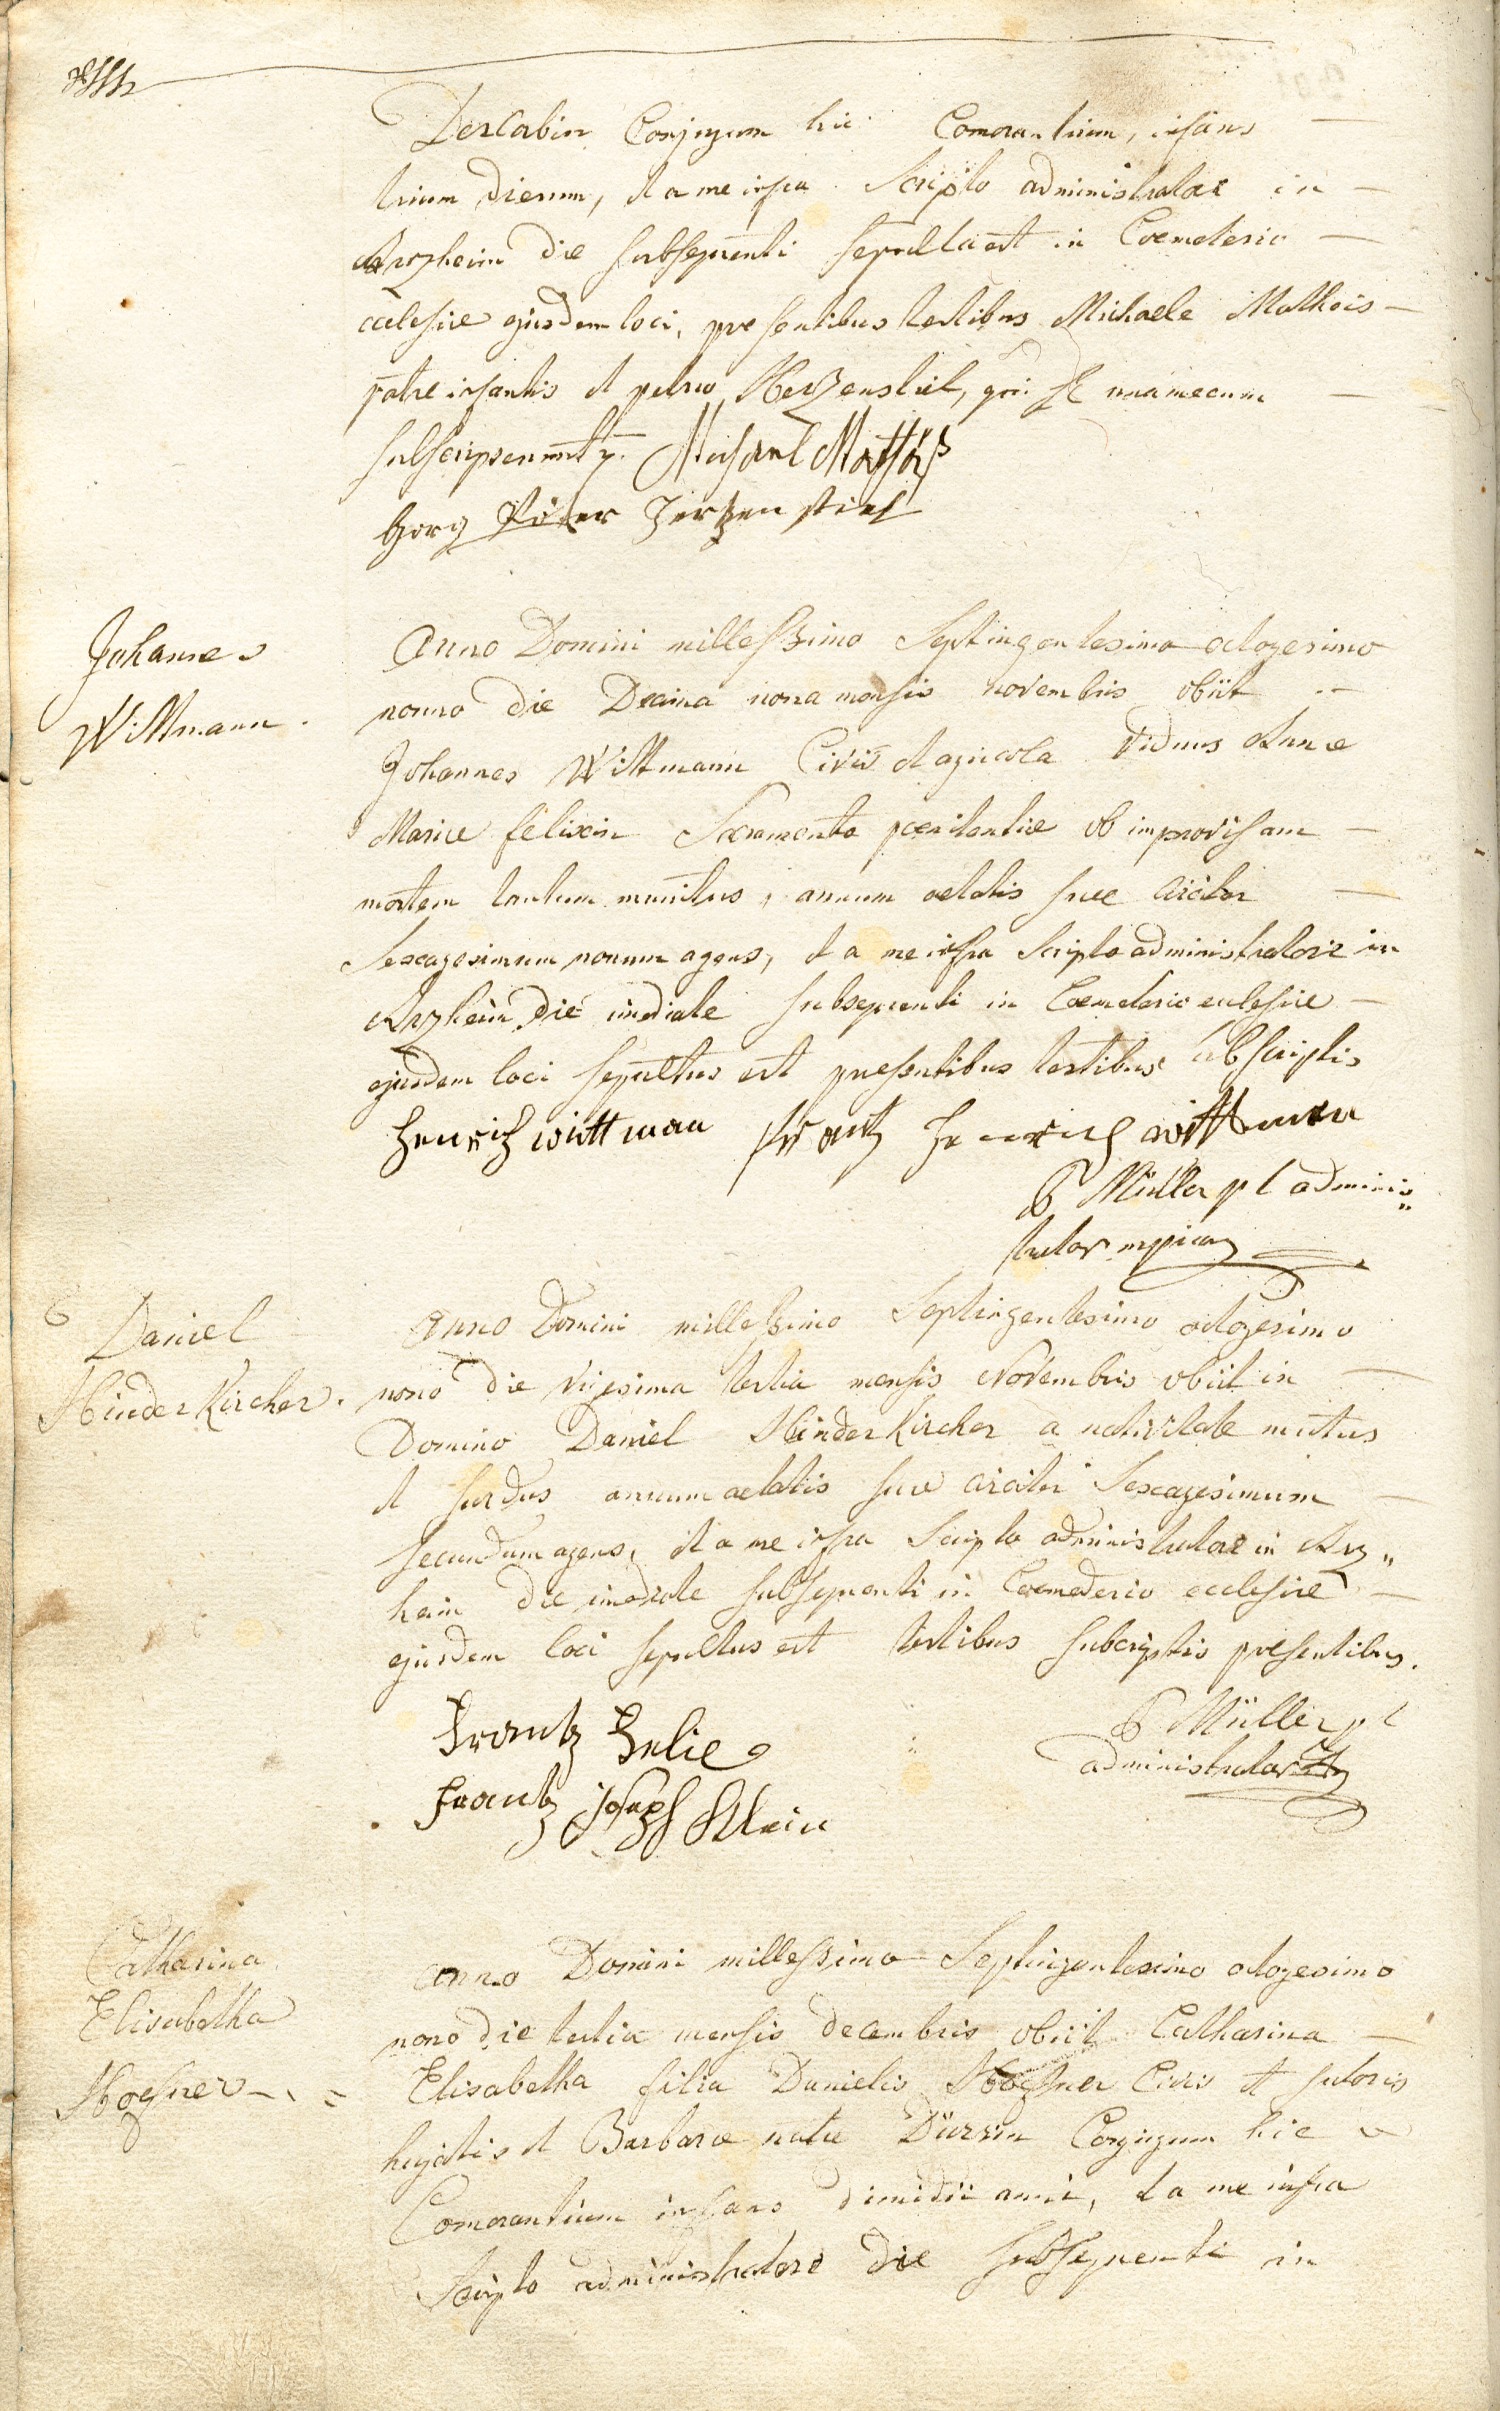 Conjugum hic Comorantium, infans
trium dierum, et a me infra Scripto administratore in
Arzheim die subsequenti sepulta est in Coemeterio
ecclesiae ejusdem loci, presentibus testibus Michaele Matheis
patre infantis et petro Herzenstiel, qui se una mecum
subscripserunt Michael Matthäß
Georg Peter Hertzenstiel
Johannes
Wittmann.
Anno Domini millessimo Septingentesimo octogesimo
nonno die Decima nona mensis novembris obiit
Johannes Wittmann Civis et agricola viduus Annae
Mariae felixin Sacramento poenitentiae ob improvisam
mortem tantum munitus, annum aetatis suae circiter
Sexagesimum nonum agens, et a me infra Scripto administratore in
Arzheim die imediate subsequenti in Coemeterio ecclesiae
ejusdem loci sepultus est presentibus testibus subscriptis
Henrich wittman frantz Henrich wittman
P Müller p l adminis
trator mpria
Daniel
Hinderkircher.
Anno Domini millessimo Septingentesimo octogesimo
nono die vigesima tertia mensis Novembris obiit in
Domino Daniel Hinderkircher a nativitate mutus
et surdus annum aetatis suae circiter Sexagesimum
secundum agens, et a me infra Scripto administratore in Arz„
heim die imediate subsequenti in Coemederio ecclesiae
ejusdem loci sepultus est testibus subcriptis presentibus.
Frantz P Müller p l
administrator
Frantz Joseph Klein
Catharina
Elisabetha
Hoffner
anno Domini millessimo Septingentesimo octogesimo
nono die tertia mensis decembris obiit Catharina
Elisabetha filia Danielis Hoffner Civis et sutoris
hujatis et Barbarae natae Dürrin Conjugum hic
Comorantium infans dimidii anni, et a me infra
Scripto administratore die subsequenti in